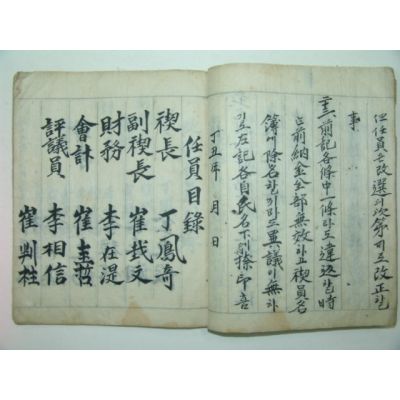 但任員은改選의次第로改正할
事
前記各條中一條라도違返할時
는前納金全部無效하고稧員名
簿에除名할지라도異議이無하
기로左記各自民名下에捺印
丁丑年 月 日
任員目錄
稧長 丁鳳奇
副稧長 崔哉文
財務 李在湜
會計 崔圭哲
評議員 李相信
崔判柱